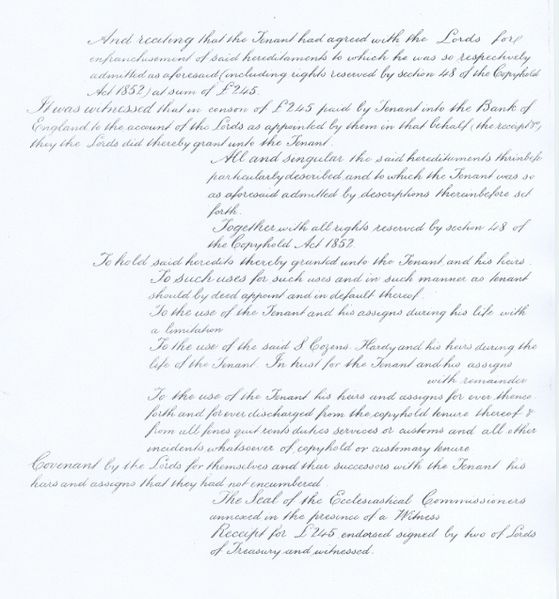 And reciting that the Tenant had agreed with the Lords for
enfranchisement of said hereditaments to which he was so respectively
admitted as aforesaid (including rights reserved by section 48 of the Copyhold
Act 1852) at sum of £245.
It was witnessed that in conson of £245 paid by Tenant into the Bank of
England to the account of the Lords as appointed by them in that behalf (the receipt &c)
they the Lords did thereby grant unto the Tenant.
All and singular the said hereditaments thrinbefe
particularly described and to which the Tenant was so
as aforesaid admitted by descriptions thereinbefore set
forth.
Together with all rights reserved by section 48 of
the Copyhold Act 1852
To hold said heredits thereby granted unto the Tenant and his heirs.
To such uses for such uses and in such manner as tenant
should by deed appoint and in default thereof.
To the use of the Tenant and his assigns during his life with
a limitation
To the use of the said S Cozens. Hardy and his heirs during the
life of the Tenant. In trust for the Tenant and his assigns
with remainder
To the use of the Tenant his heirs and assigns for ever thence
forth and for ever discharged from the copyhold tenure thereof &
from all fines quit rents duties services or customs and all other
incidents whatsoever of copyhold or customary tenure
Covenant by the Lords for themselves and their successors with the Tenant his
heirs and assigns that they had not encumbered.
The Seal of the Ecclesiastical Commissioners
annexed in the presence of a Witness
Receipt for £245 endorsed signed by two of Lords
of Treasury and witnessed.